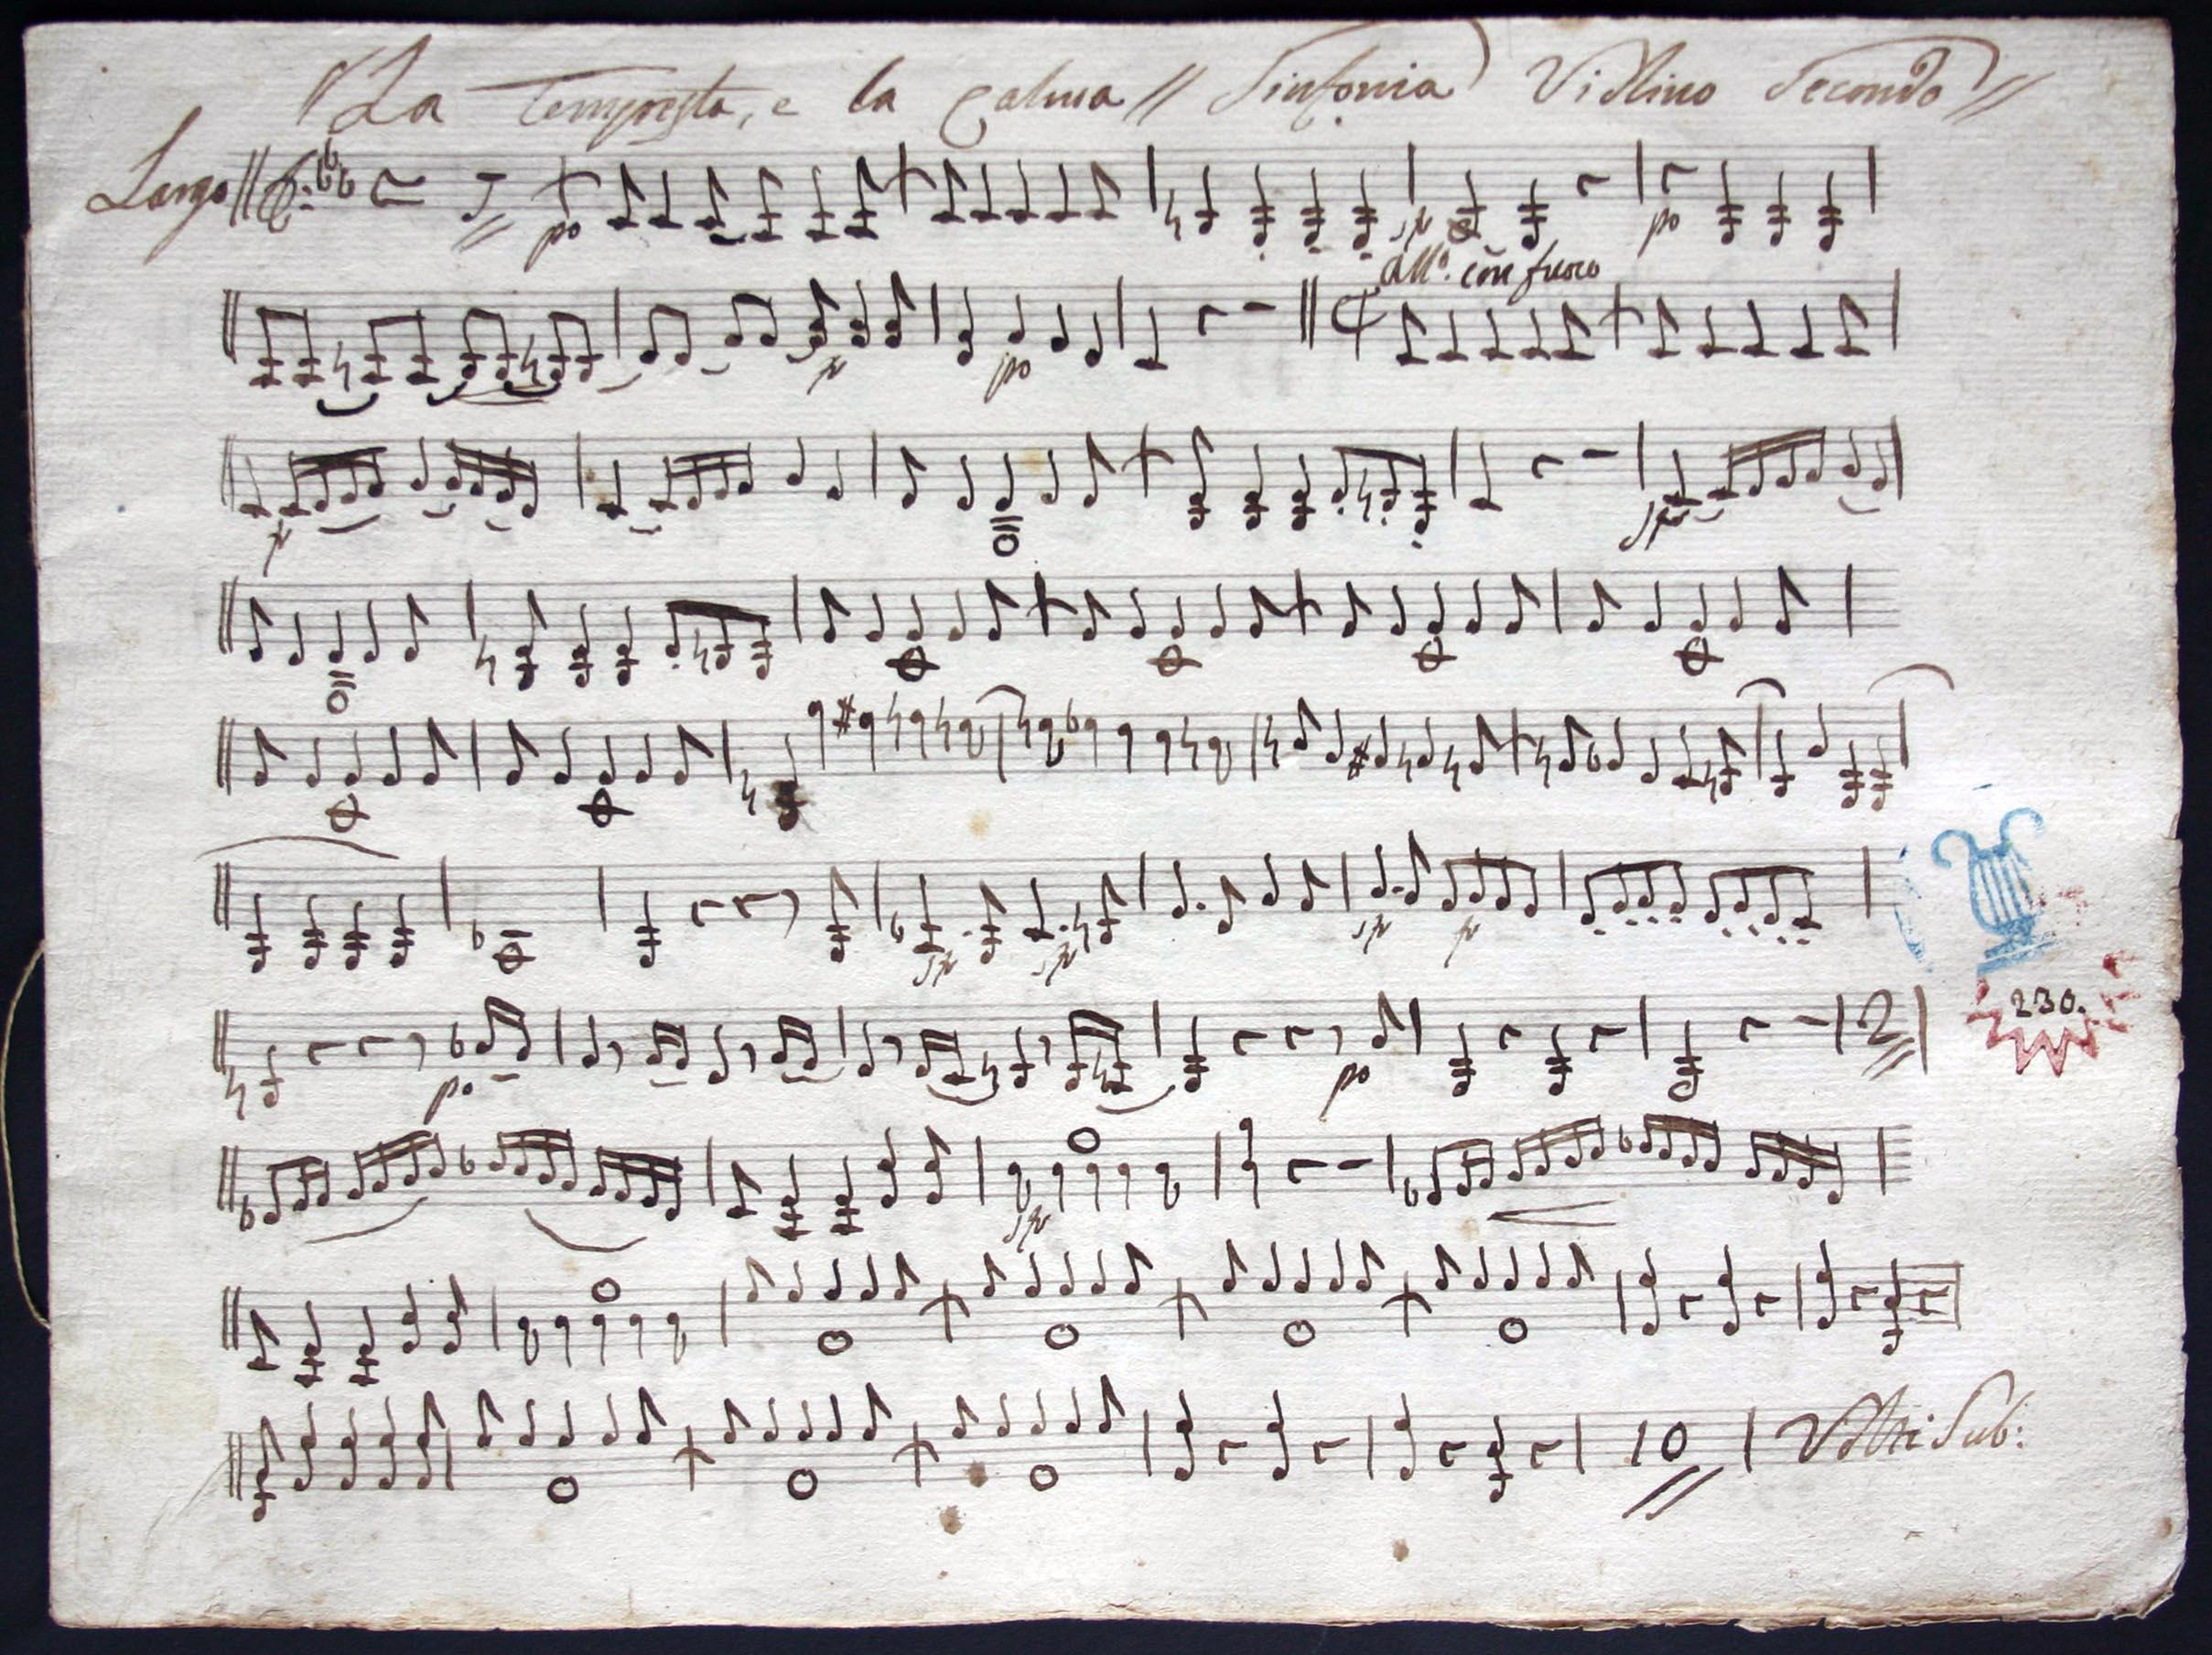 La Tempesta, e la Calma // Sinfonia Violino Secondo //
Largo
po
fp
po
All.o con fuoco
f
po
f
sfp
fp
fp
fp
f
230.
po
po
2
fp
10
Volti Sub: